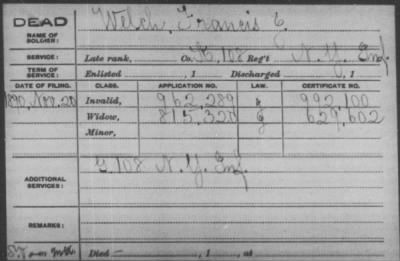 DEAD
NAME OF SOLDIER: Welch, Francis
SERVICE: Late rank, Co. K, 108 Reg't N.Y. Inf.
TERM OF SERVICE: Enlisted , 1 Discharged , 1
DATE OF FILING. CLASS. APPLICATION NO. LAW. CERTIFICATE NO.
1890, Nov. 20 Invalid, 962,289 992,100
Widow, 815,320 G 629,602
Minor,
ADDITIONAL SERVICES: G, 108 N.Y. Inf.
REMARKS:
Died , 1 , at